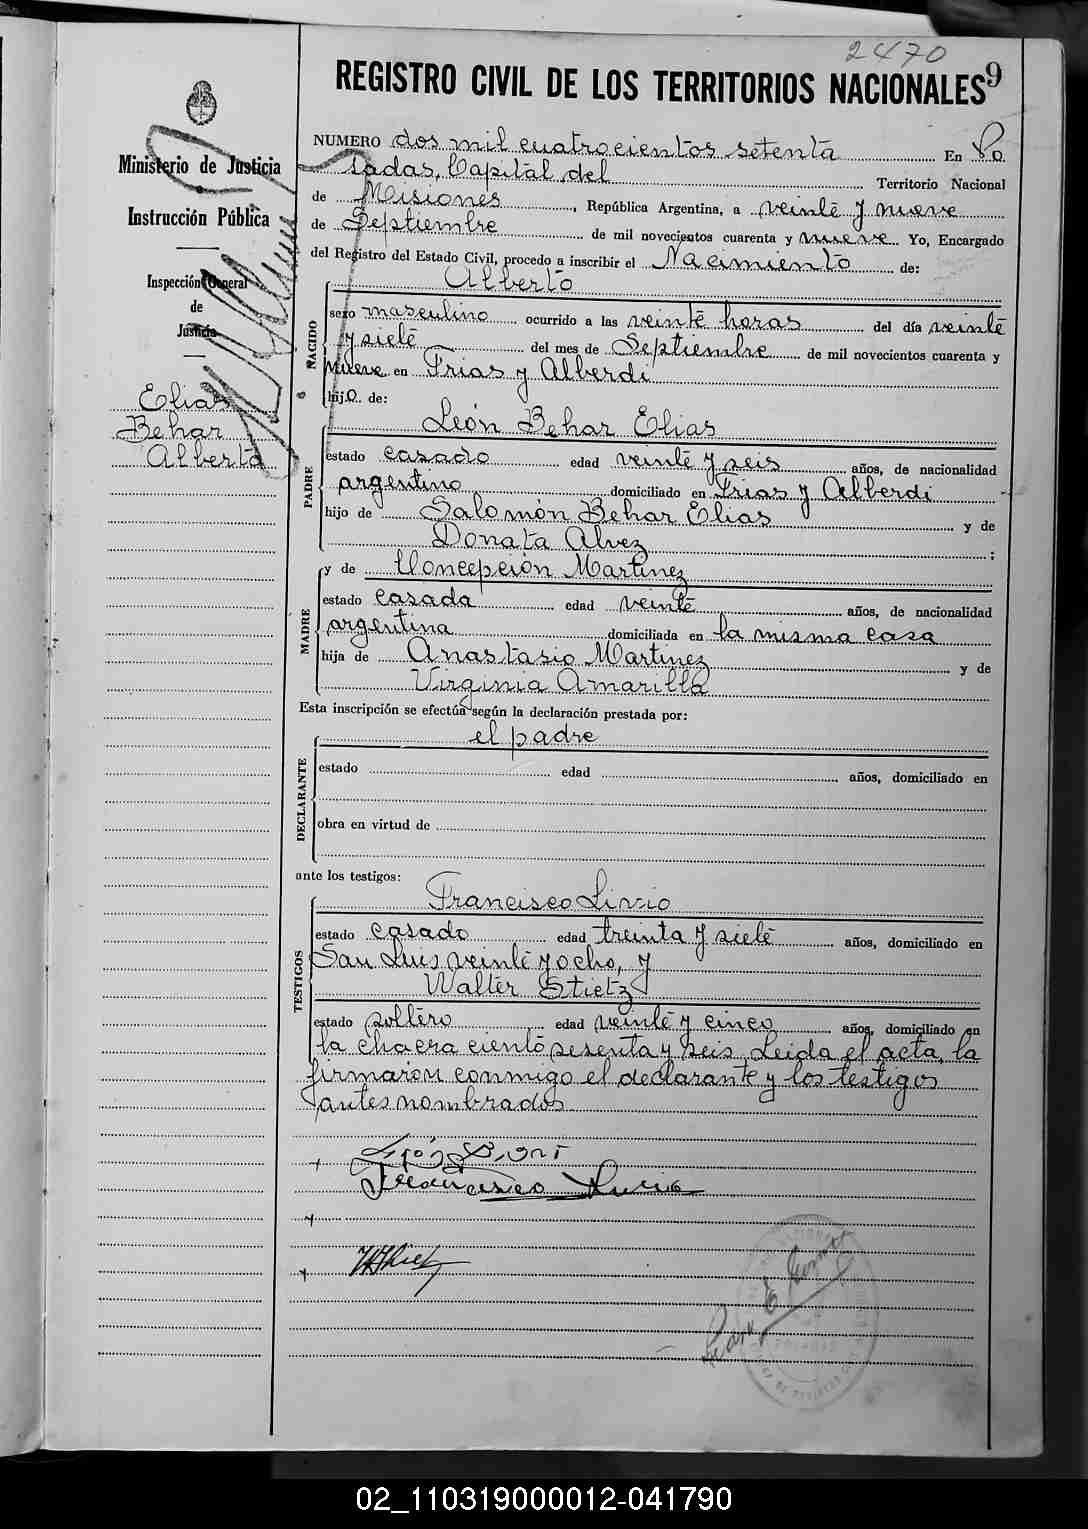 2470
REGISTRO CIVIL DE LOS TERRITORIOS NACIONALES 9
Ministerio de Justicia
Instrucción Pública
Inspección General
de
Justicia
Elias
Behar
Alberto
NUMERO dos mil cuatrocientos setenta En Po
sadas, Capital del Territorio Nacional
de Misiones, República Argentina, a veinte y nueve
de Septiembre de mil novecientos cuarenta y nueve Yo, Encargado
del Registro del Estado Civil, procedo a inscribir el Nacimiento de:
NACIDO
Alberto
sexo masculino ocurrido a las veinte horas del día veinte
y siete del mes de Septiembre de mil novecientos cuarenta y
nueve en Frias y Alberdi
hijo de:
PADRE
León Behar Elias
estado casado edad veinte y seis años, de nacionalidad
argentino domiciliado en Frias y Alberdi
hijo de Salomón Behar Elias y de
Donata Alvez :
MADRE
y de Concepción Martinez
estado casada edad veinte años, de nacionalidad
argentina domiciliada en la misma casa
hija de Anastasio Martinez y de
Virginia Amarilla
Esta inscripción se efectúa según la declaración prestada por:
DECLARANTE
el padre
estado edad años, domiciliado en
obra en virtud de
ante los testigos:
TESTIGOS
Francisco Livio
estado casado edad treinta y siete años, domiciliado en
San Luis veinte y ocho, y
Walter Stietz
estado soltero edad veinte y cinco años, domiciliado en
la chacra ciento sesenta y seis. Leida el acta, la
firmaron conmigo el declarante y los testigos
antes nombrados
Francisco Livio
02_110319000012-041790